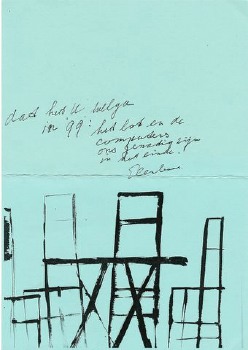 dat het U welga
in '99: het lot en de
computers
ons genadig zijn
in het einde.